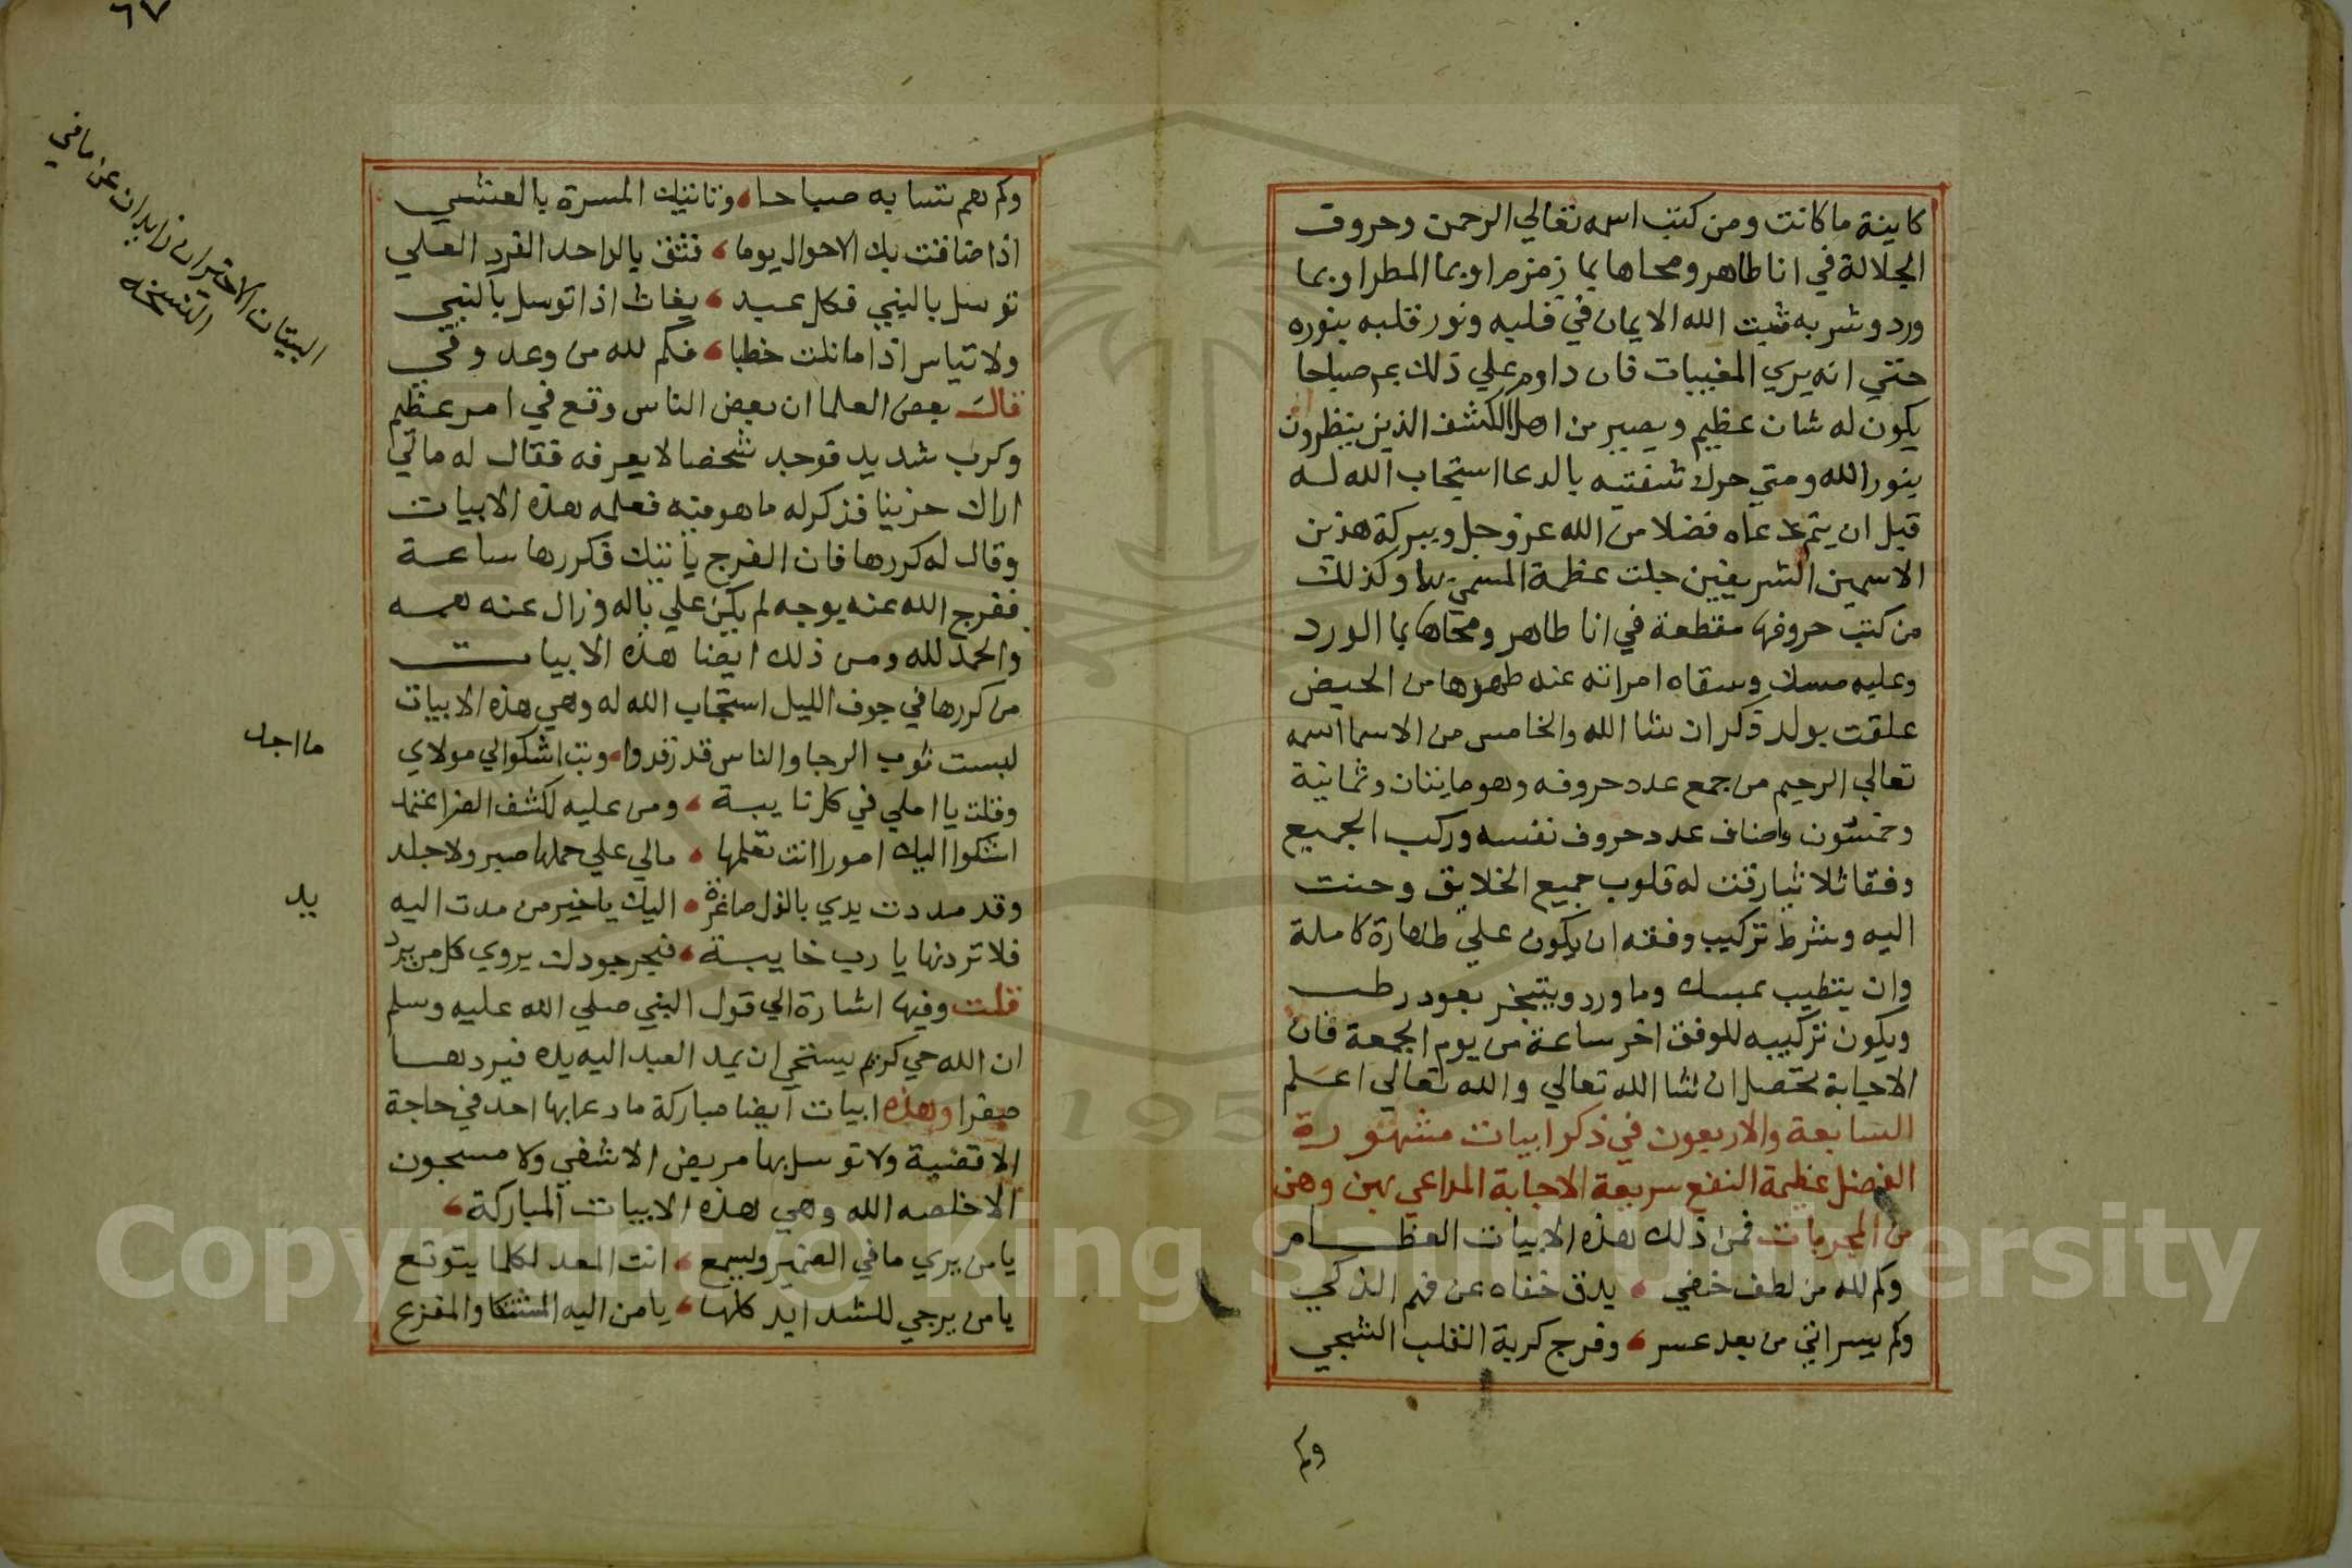 كاينة ما كانت ومن كتب اسمه تعالي الرحمن وحروف
الجلالة في انا طاهر ومحاها بما زمزم او بما المطر او بما
ورد وشربه ثبت الله الايمان في قلبه ونور قلبه بنوره
حتي انه يري المغيبات فان داوم علي ذلك بعم صباحا
يكون له شان عظيم ويصير من اهل الكشف الذين ينظرون
بنور الله ومتي حرك شفتيه بالدعا استجاب الله له
قبل ان يتم دعاه فضلا من الله عز وجل وببركة هذين
الاسمين الشريفين جلت عظمة المسمي بها وكذلك
من كتب حروفها مقطعة في انا طاهر ومحاها بما الورد
وعليه مسك وسقاه امراته عند طهرها من الحيض
علقت بولد ذكر ان شا الله والخامس من الاسما اسمه
تعالي الرحيم من جمع عدد حروفه وهو مايتان وثمانية
وخمسون واضاف عدد حروف نفسه وركب الجميع
وفقا ثلاثيا رقت له قلوب جميع الخلايق وحنت
اليه وشرط تركيب وفقه ان يكون علي طهارة كاملة
وان يتطيب بمسك وما ورد ويتبخر بعود رطب
ويكون تركيبه للوفق اخر ساعة من يوم الجمعة فان
الاجابة تحصل ان شا الله تعالي والله تعالي اعلم
السابعة والاربعون في ذكر ابيات مشهورة
الفضل عظيمة النفع سريعة الاجابة الداعي بهن وهن
من المجربات فمن ذلك هذه الابيات العظام
وكم لله من لطف خفي ، يدق خفاه عن فهم الذكي
وكم يسر اتي من بعد عسر ، وفرج كربة القلب الشجي
وكم
٦٧
وكم هم تسا به صباحا ، وتاتيك المسرة بالعشي
اذا ضاقت بك الاحوال يوما ، فثق بالواحد الفرد العلي
توسل بالنبي فكل عبد ، يغاث اذا توسل بالنبي
ولا تياس اذا ما نلت خطبا ، فكم لله من وعد وفي
قال بعض العلما ان بعض الناس وقع في امر عظيم
وكرب شديد فوجد شخصا لا يعرفه فقال له مالي
اراك حزينا فذكر له ما هو فيه فعلمه هذه الابيات
وقال له كررها فان الفرج ياتيك فكررها ساعة
ففرج الله عنه بوجه لم يكن علي باله وزال عنه همه
والحمد لله ومن ذلك ايضا هذه الابيات
من كررها في جوف الليل استجاب الله له وهي هذه الابيات
لبست ثوب الرجا والناس قد رقدوا ، وبت اشكوا لي مولاي
ما اجد
وقلت يا املي في كل نايبة ، ومن عليه لكشف الضر اعتمد
اشكوا اليك امورا انت تعلمها ، مالي علي حملها صبر ولا جلد
وقد مددت يدي بالذل صاغرة ، اليك يا خير من مدت اليه
يد
فلا تردنها يا رب خايبة ، فبحر جودك يروي كل من يرد
قلت وفيها اشارة الي قول النبي صلي الله عليه وسلم
ان الله حي كريم يستحي ان يمد العبد اليه يده فيردها
صفرا وهذه ابيات ايضا مباركة ما دعا بها احد في حاجة
الا قضية ولا توسل بها مريض الا شفي ولا مسجون
الا خلصه الله وهي هذه الابيات المباركة ،
يا من يري ما في الضمير ويسمع ، انت المعد لكلما يتوقع
يا من يرجي للشدايد كلها ، يا من اليه المشتكا والمفزع
البيتان الاخيران زايدان عن ما في
النسخه
Copyright © King Saud University
1957